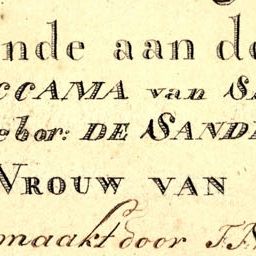 nde aan de
CCAMA van S
ebor: DE SANDE
VROUW VAN
maakt door J.